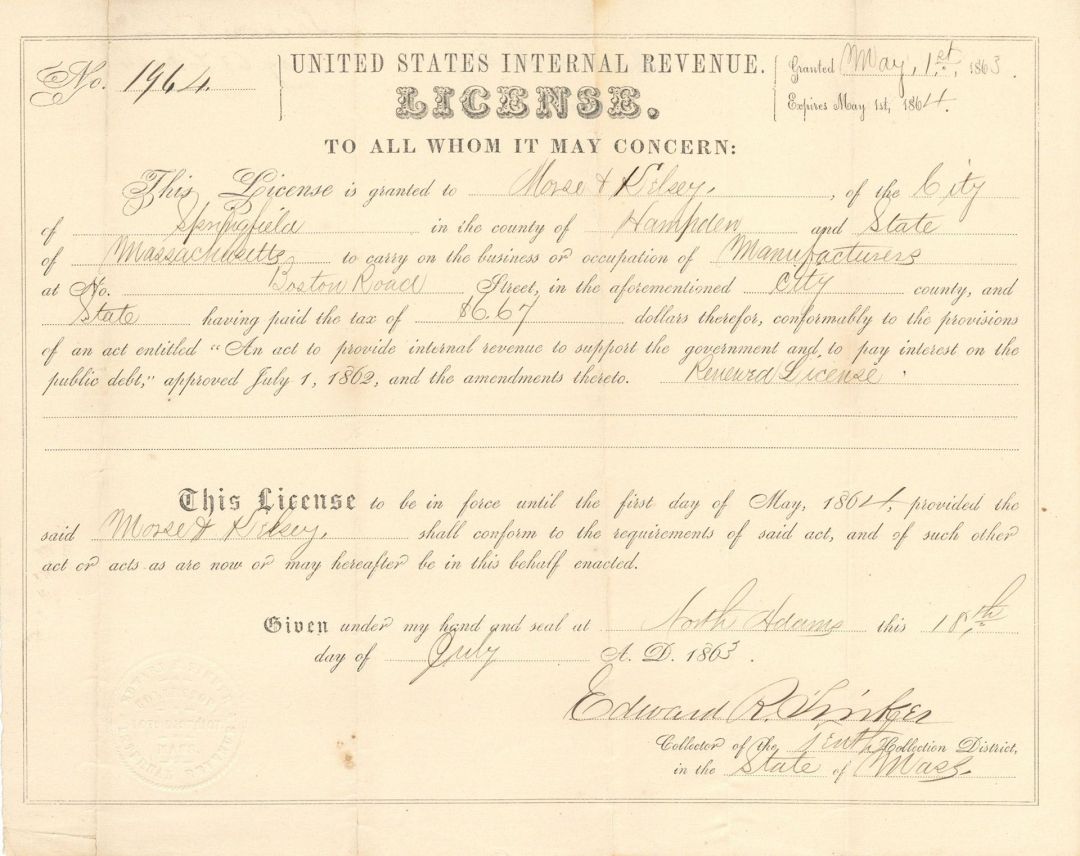 No. 1964.
UNITED STATES INTERNAL REVENUE.
LICENSE.
Granted May, 1st, 1863.
Expires May 1st, 1864.
TO ALL WHOM IT MAY CONCERN:
This License is granted to Morse & Kelsey, of the City
of Springfield in the county of Hampden and State
of Massachusetts to carry on the business or occupation of Manufacturers
at No. Boston Road Street, in the aforementioned City county, and
State having paid the tax of $6.67 dollars therefor, conformably to the provisions
of an act entitled "An act to provide internal revenue to support the government and to pay interest on the
public debt," approved July 1, 1862, and the amendments thereto. Renewed License.
This License to be in force until the first day of May, 1864, provided the
said Morse & Kelsey, shall conform to the requirements of said act, and of such other
act or acts as are now or may hereafter be in this behalf enacted.
Given under my hand and seal at North Adams this 18th
day of July A. D. 1863.
Edward R. Tinker
Collector of the Tenth Collection District,
in the State of Mass.